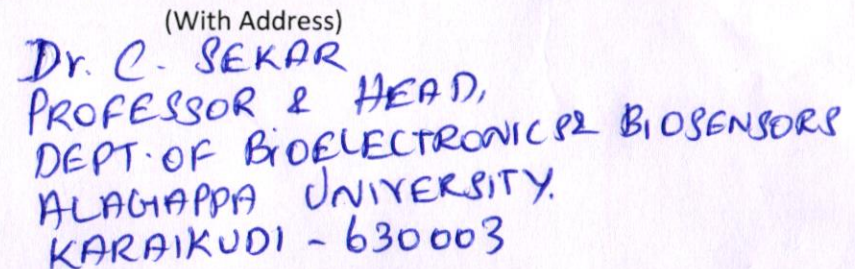 (With Address)
Dr. C. SEKAR
PROFESSOR & HEAD,
DEPT. OF BIOELECTRONICS & BIOSENSORS
ALAGAPPA UNIVERSITY.
KARAIKUDI - 630003